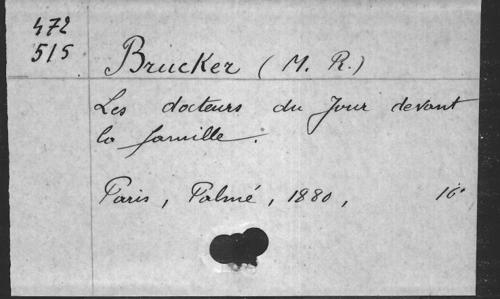 472
515
Brucker (M. R.)
Les docteurs du Jour devant
la famille.
Paris, Palmé, 1880, 16°